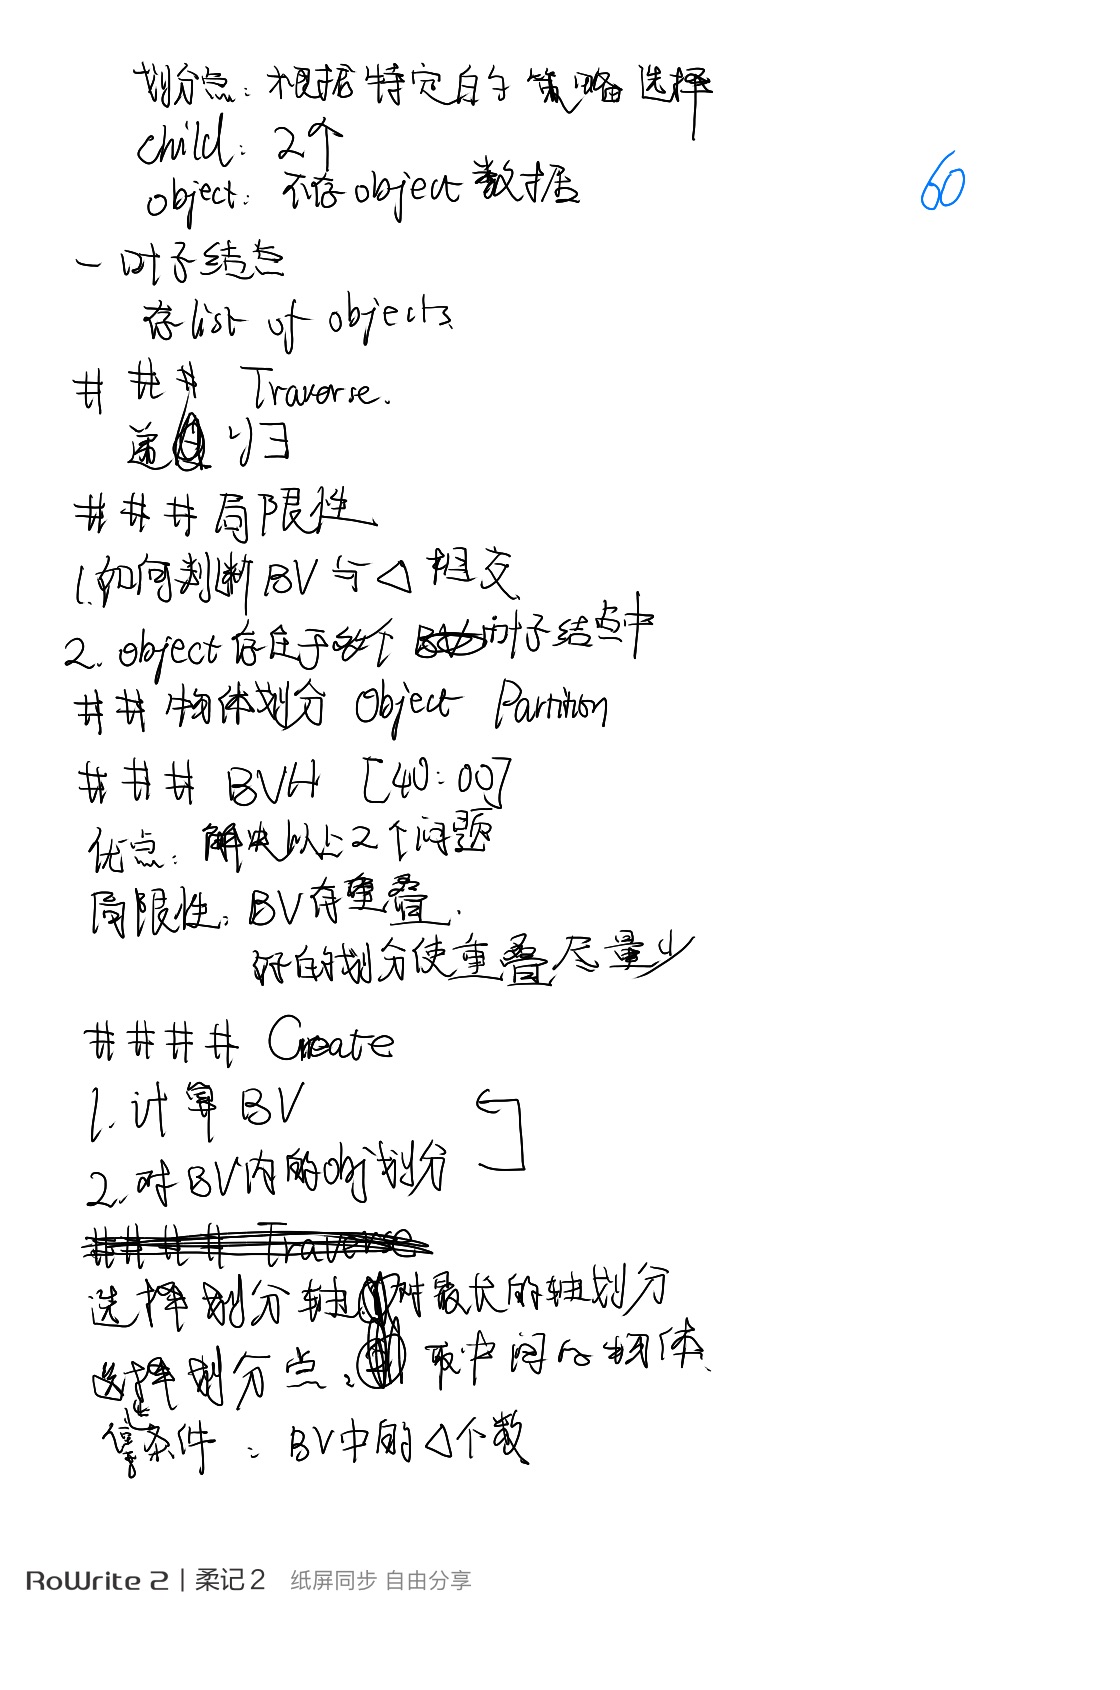 划分点：根据特定的策略选择
child：2个
object：不存object数据
60
— 叶子结点
存list of objects.
### Traverse.
递归
### 局限性
1.如何判断BV与△相交
2. object存在于多个叶子结点中
## 物体划分 Object Partition
### BVH [40:00]
优点：解决以上2个问题
局限性：BV有重叠.
好的划分使重叠尽量少
#### Create
1.计算BV
2.对BV内的obj划分
#### Traverse
选择划分轴：对最长的轴划分
选择划分点：取中间的物体.
停止条件：BV中的△个数
RoWrite 2 | 柔记 2 纸屏同步 自由分享